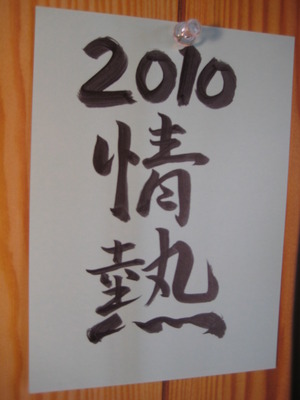 2010
情
熱